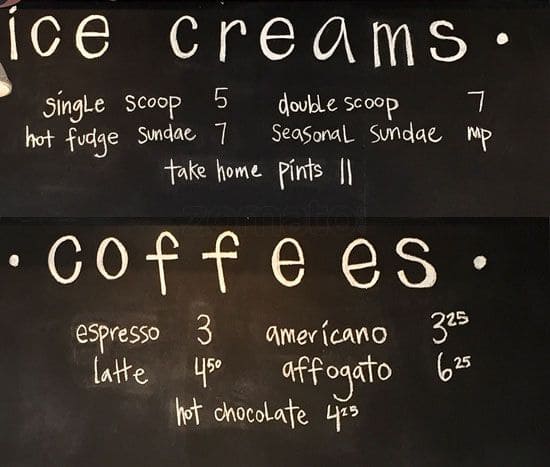 ice creams •
single scoop 5 double scoop 7
hot fudge sundae 7 seasonal sundae mp
take home pints 11
zomato
• coffees •
espresso 3 americano 3 25
latte 4 50 affogato 6 25
hot chocolate 4 25